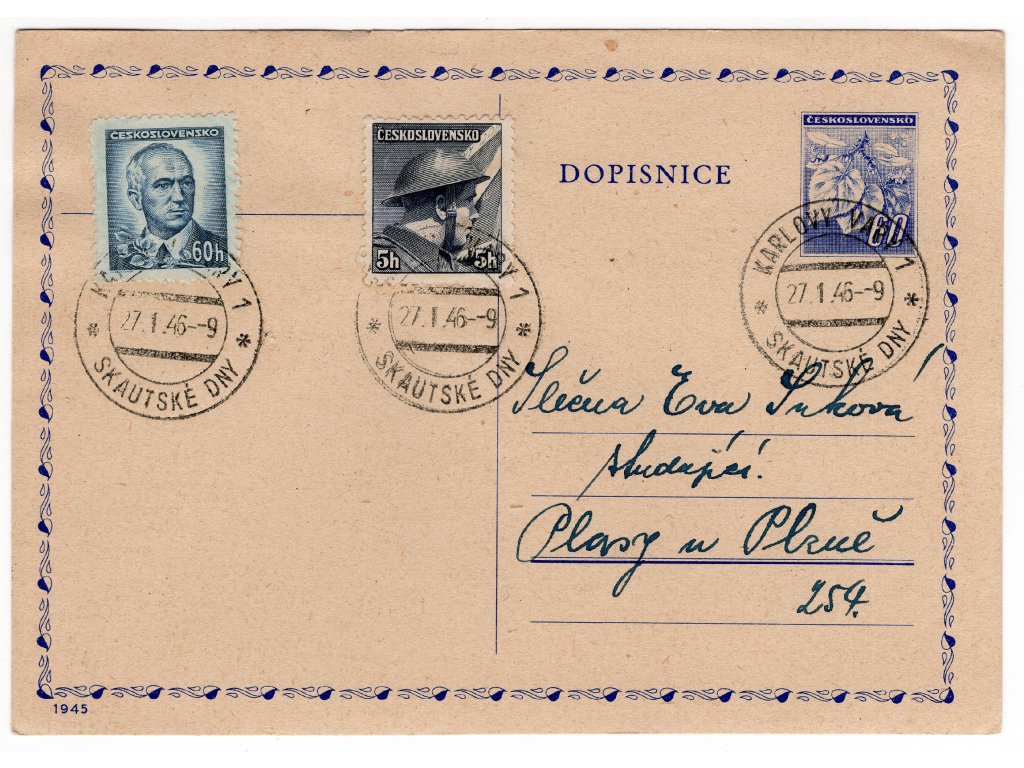 ČESKOSLOVENSKO
60h
ČESKOSLOVENSKO
5h 5h
DOPISNICE
ČESKOSLOVENSKO
60
VARY 1
27.1.46--9
* SKAUTSKÉ DNY *
VARY 1
27.1.46--9
* SKAUTSKÉ DNY *
KARLOVY VARY 1
27.1.46--9
* SKAUTSKÉ DNY *
Slečna Eva
studující.
Plasy u Plzně
254.
1945